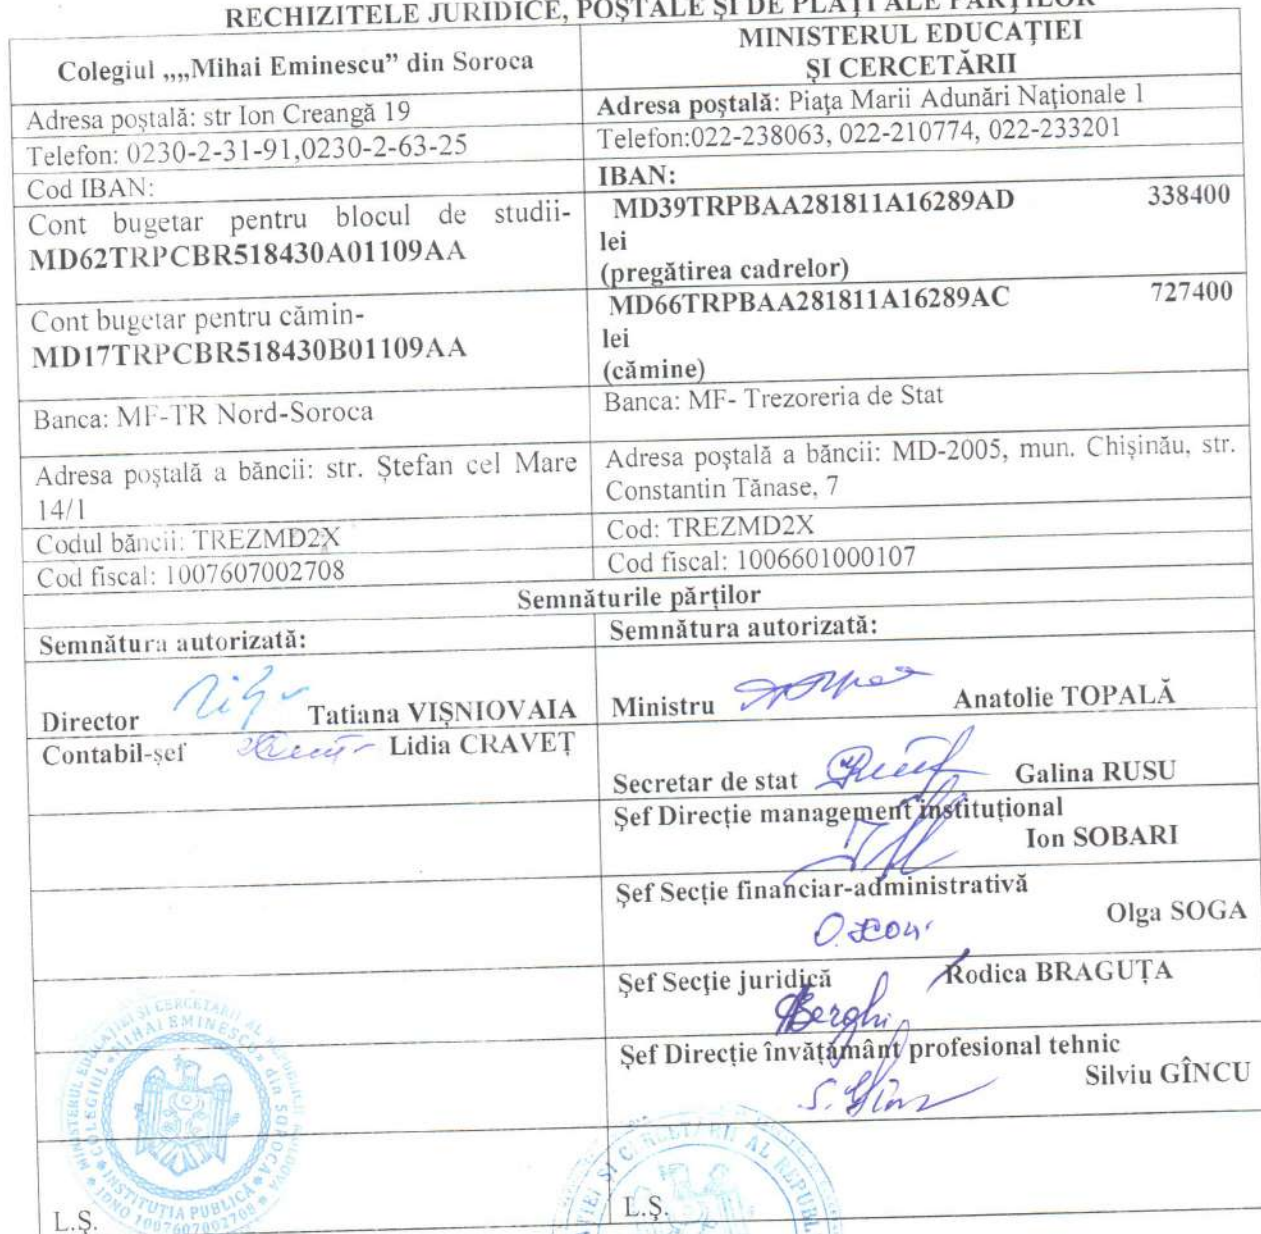 RECHIZITELE JURIDICE, POȘTALE ȘI DE PLĂȚI ALE PĂRȚILOR
Colegiul „„Mihai Eminescu” din Soroca
MINISTERUL EDUCAȚIEI
ȘI CERCETĂRII
Adresa poștală: str Ion Creangă 19
Adresa poștală: Piața Marii Adunări Naționale 1
Telefon: 0230-2-31-91,0230-2-63-25
Telefon:022-238063, 022-210774, 022-233201
Cod IBAN:
IBAN:
Cont bugetar pentru blocul de studii-
MD62TRPCBR518430A01109AA
MD39TRPBAA281811A16289AD 338400
lei
(pregătirea cadrelor)
Cont bugetar pentru cămin-
MD17TRPCBR518430B01109AA
MD66TRPBAA281811A16289AC 727400
lei
(cămine)
Banca: MF-TR Nord-Soroca
Banca: MF- Trezoreria de Stat
Adresa poștală a băncii: str. Ștefan cel Mare
14/1
Adresa poștală a băncii: MD-2005, mun. Chișinău, str.
Constantin Tănase, 7
Codul băncii: TREZMD2X
Cod: TREZMD2X
Cod fiscal: 1007607002708
Cod fiscal: 1006601000107
Semnăturile părților
Semnătura autorizată:
Semnătura autorizată:
Director Tatiana VIȘNIOVAIA
Ministru Anatolie TOPALĂ
Contabil-șef Lidia CRAVEȚ
Secretar de stat Galina RUSU
Șef Direcție management instituțional
Ion SOBARI
Șef Secție financiar-administrativă
Olga SOGA
Șef Secție juridică Rodica BRAGUȚA
Șef Direcție învățământ profesional tehnic
Silviu GÎNCU
S. Gîncu
MINISTERUL EDUCAȚIEI ȘI CERCETĂRII AL REPUBLICII MOLDOVA
COLEGIUL «MIHAI EMINESCU» din SOROCA
INSTITUȚIA PUBLICĂ
IDNO 1007607002708
ȘI CERCETĂRII AL REPUBL
L.Ș.
L.Ș.